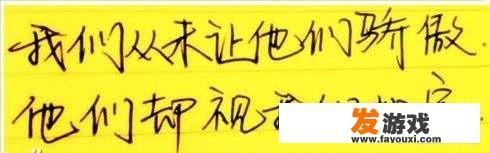 我们从未让他们骄傲.
他们却视我们如宝
发游戏
www.fayouxi.com